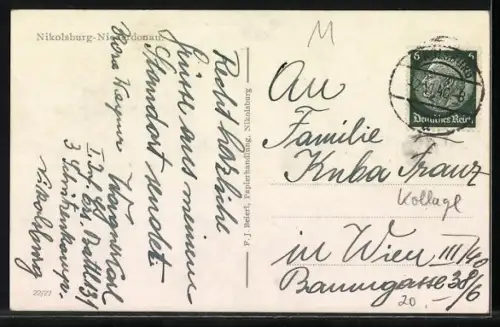 Nikolsburg-Niederdonau.
Recht herzliche
Grüsse aus meinem
Standort sendet
Wagner Karl
I. Inf. Ers. Battl. 131
3 Schützenkomp.
Nikolsburg
22/27
F. J. Beierl, Papierhandlung, Nikolsburg
M
6
6
Deutsches Reich
An
Familie
Kuba Franz
Kollage
in Wien III/40
Baumgasse 38/6
20.-